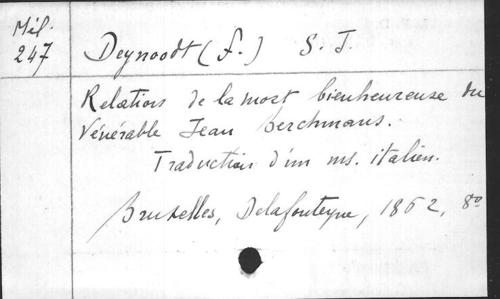 Mél.
247
Deynoodt (F.) S. J.
Relation de la mort bienheureuse du
Vénérable Jean Berchmans.
Traduction d'un ms. italien.
Bruxelles, Delafonteyne, 1862, 8o